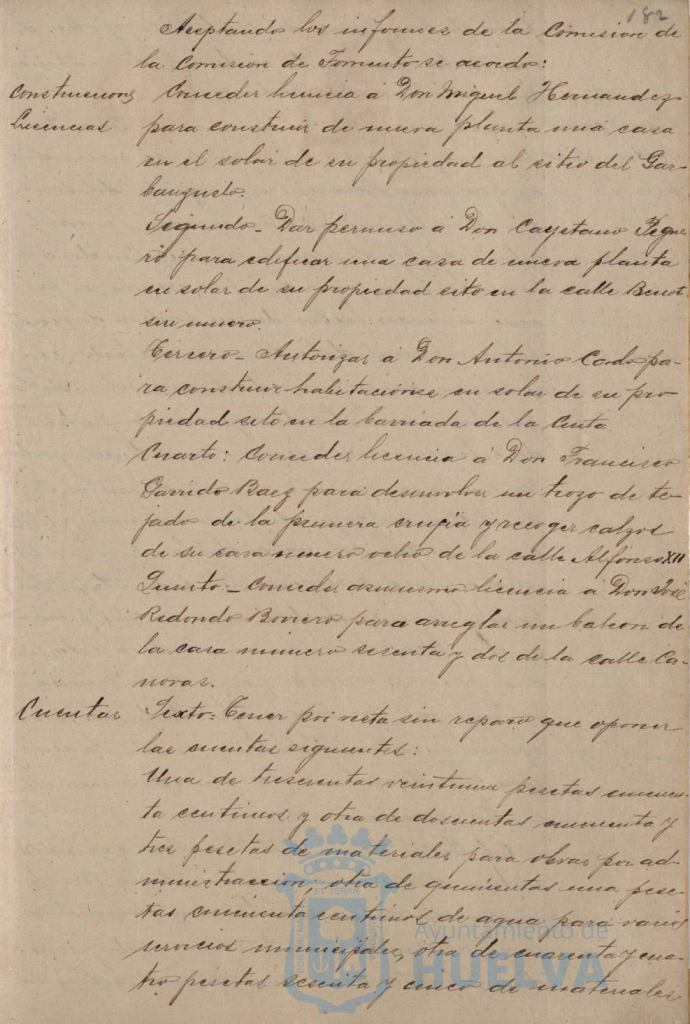 182
Aceptando los informes de la Comision de
la Comision de Fomento se acordo:
Construcciones
Licencias
Conceder licencia á Don Miguel Hernandez
para construir de nueva planta una casa
en el solar de su propiedad al sitio del Gar-
banzuelo.
Segundo_ Dar permiso á Don Cayetano
ro para edificar una casa de nueva planta
en solar de su propiedad sito en la calle Benot
sin numero.
Tercero_ Autorizar á Don Antonio Cado pa-
ra construir habitaciones en solar de su pro
piedad sito en la barriada de la Cinta
Cuarto: Conceder licencia á Don Francisco
Garrido Baez para desenvolver un trozo de te-
jado de la primera crugia y recoger calzos
de su casa numero ocho de la calle Alfonso XII
Quinto_ Conceder asimismo licencia á Don José
Redondo Borrero para arreglar un balcon de
la casa numero sesenta y dos de la calle Ca-
novas.
Cuentas
Sexto: Tener por vista sin reparo que oponer
las cuentas siguientes:
Una de trescientas veintiuna pesetas cincuen-
ta centimos y otra de doscientas cincuenta y
tres pesetas de materiales para obras por ad-
ministracion, otra de quinientas una pese-
tas cincuenta centimos de agua para varios
servicios municipales, otra de cuarenta y cua-
tro pesetas sesenta y cinco de materiales
Ayuntamiento de
HUELVA